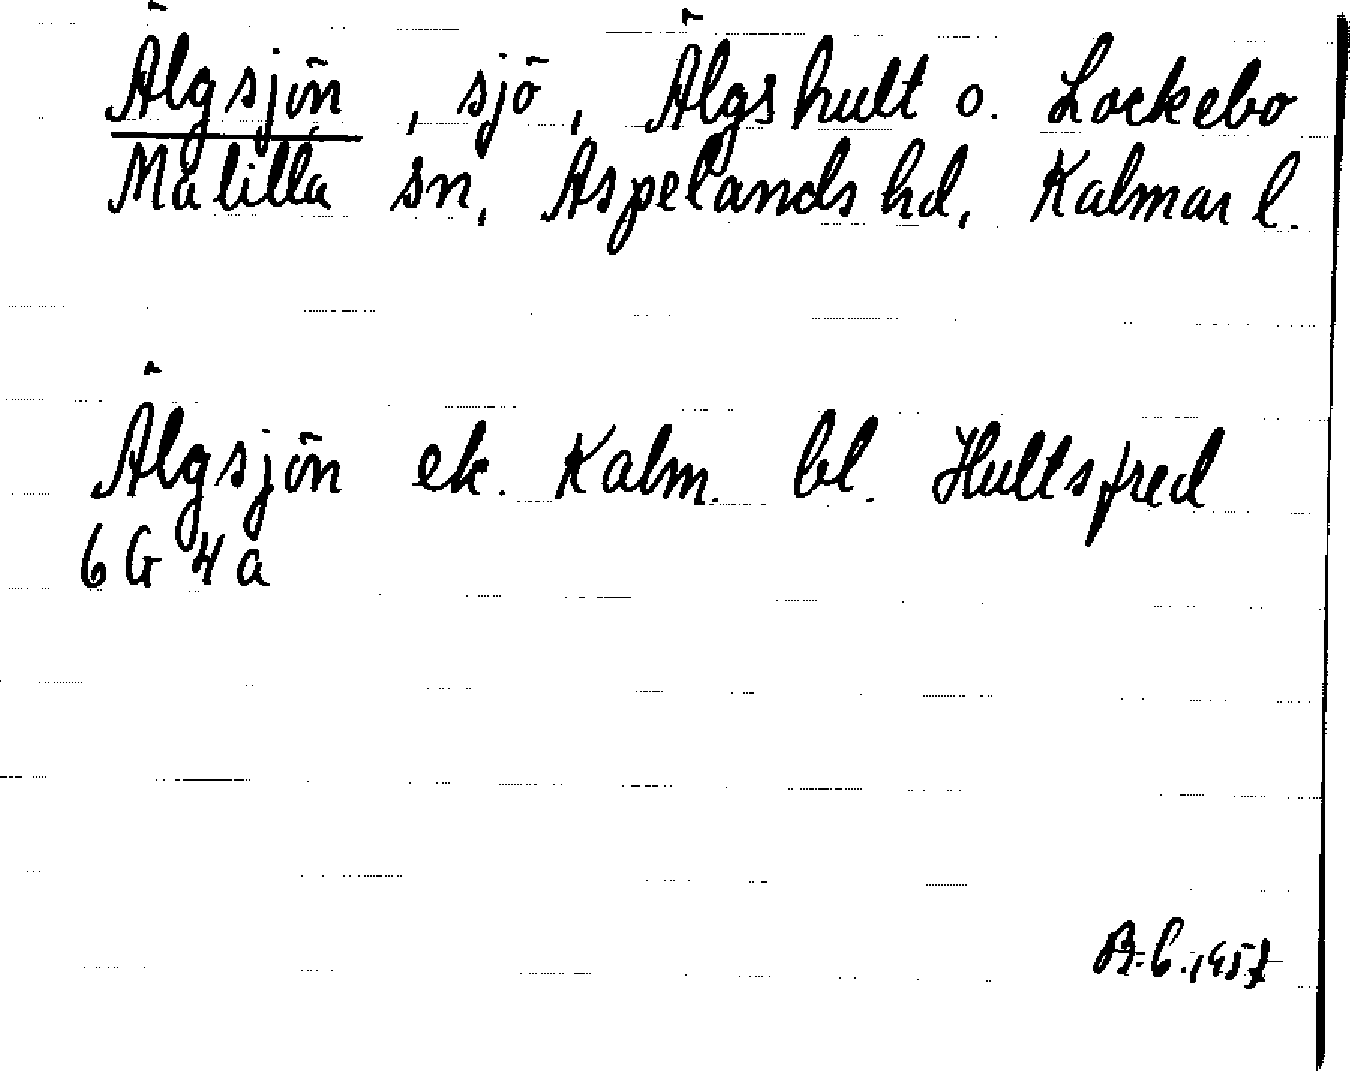 Älgsjön, sjö, Älgshult o. Lockebo
Målilla sn, Aspelands hd, Kalmar l.
Älgsjön ek. Kalm. bl. Hultsfred
6 G 4 a
B. C. 1957